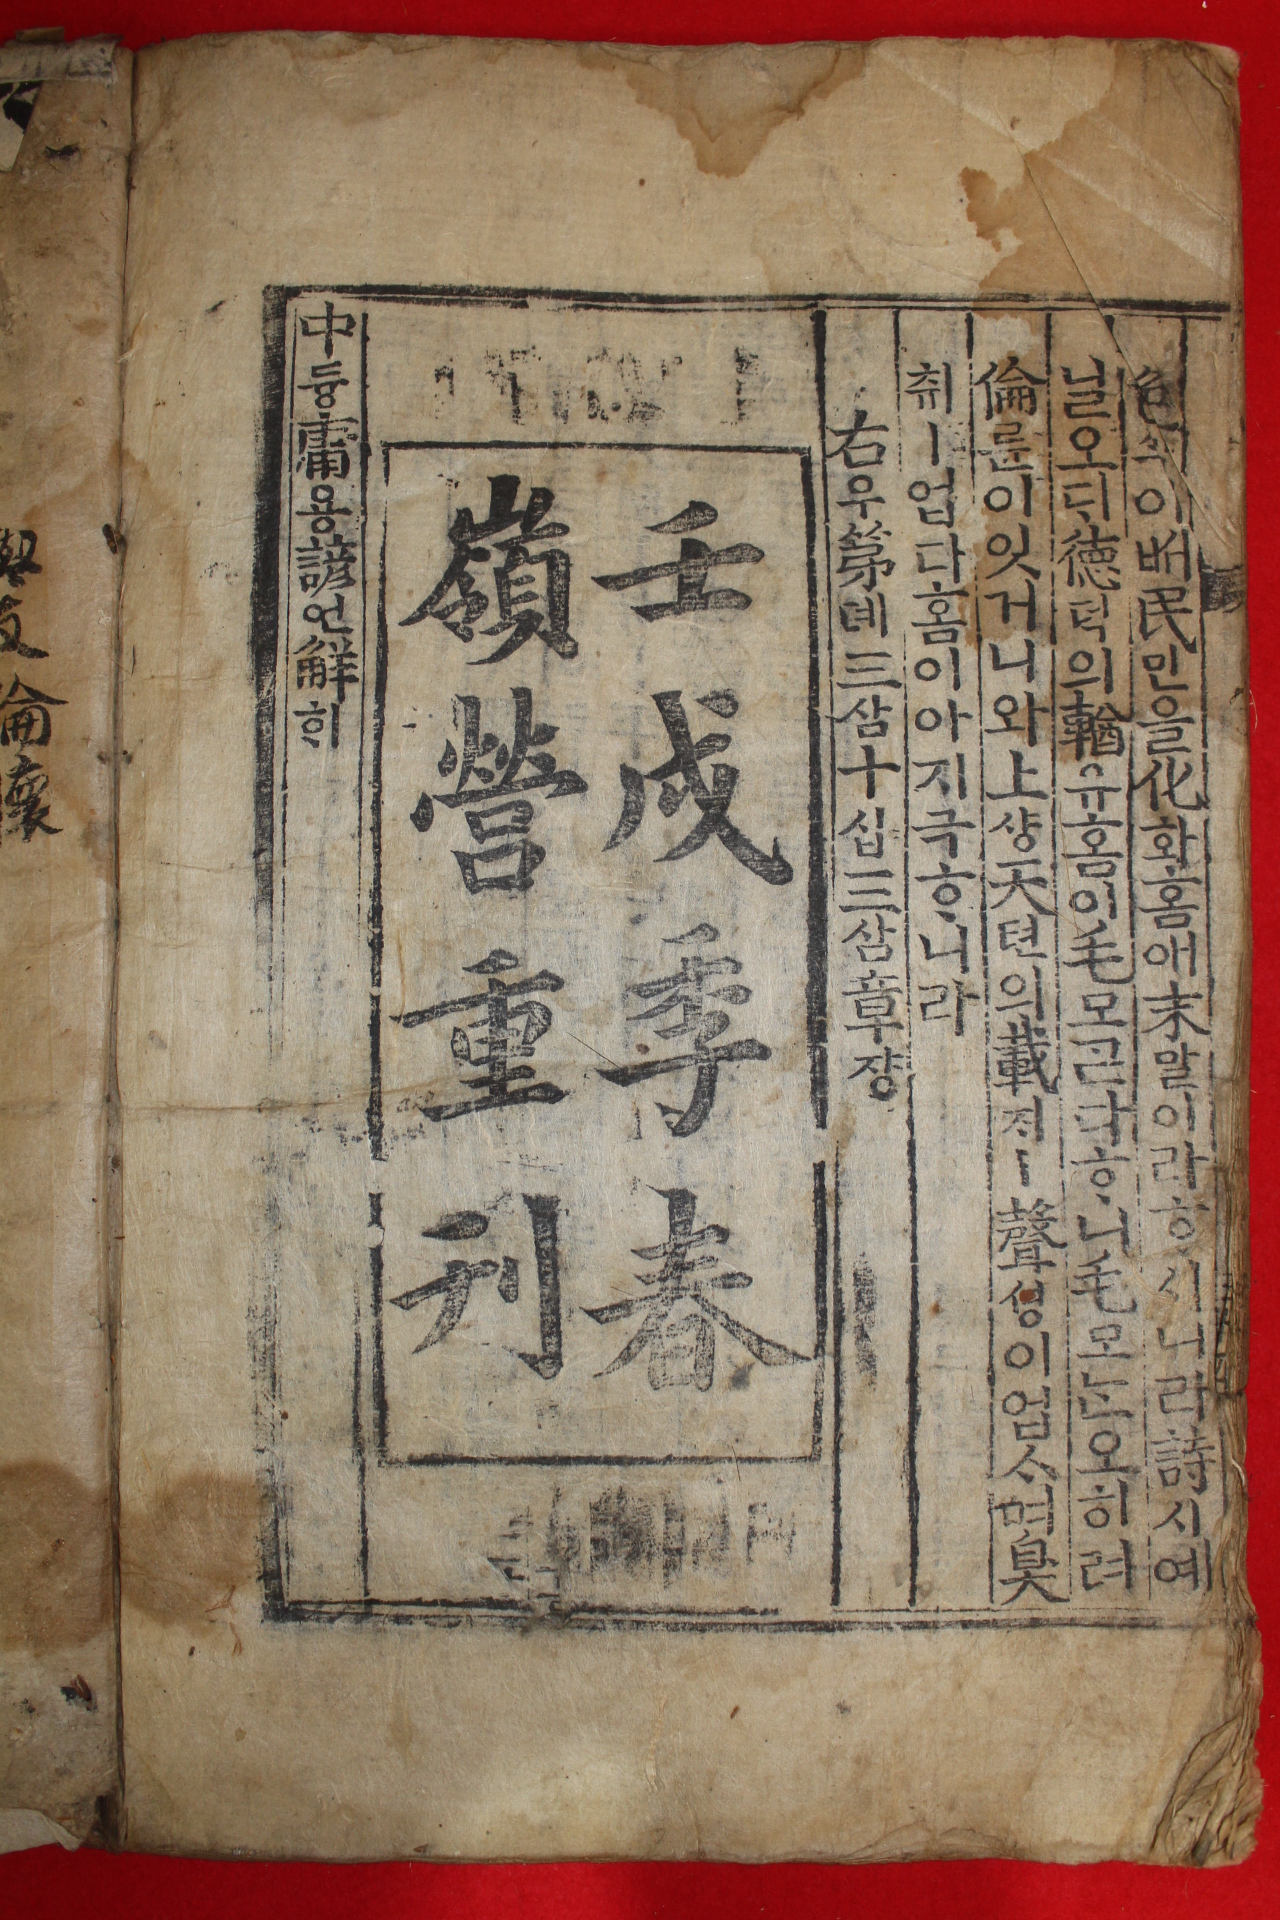 色ᄉᆡᆨ이 ᄡᅥ民민을化화홈애末말이라ᄒᆞ시니라詩시예
닐오ᄃᆡ德덕의輶유홈이毛모ᄀᆞᆮ다ᄒᆞ니毛모ᄂᆞᆫ오히려
倫륜이잇거니와上샹天텬의載ᄌᆡㅣ聲셩이업스며臭
취ㅣ업다홈이아지극ᄒᆞ니라
右우第뎨三삼十십三삼章쟝
壬戌季春
嶺營重刊
中듕庸용諺언解ᄒᆡ